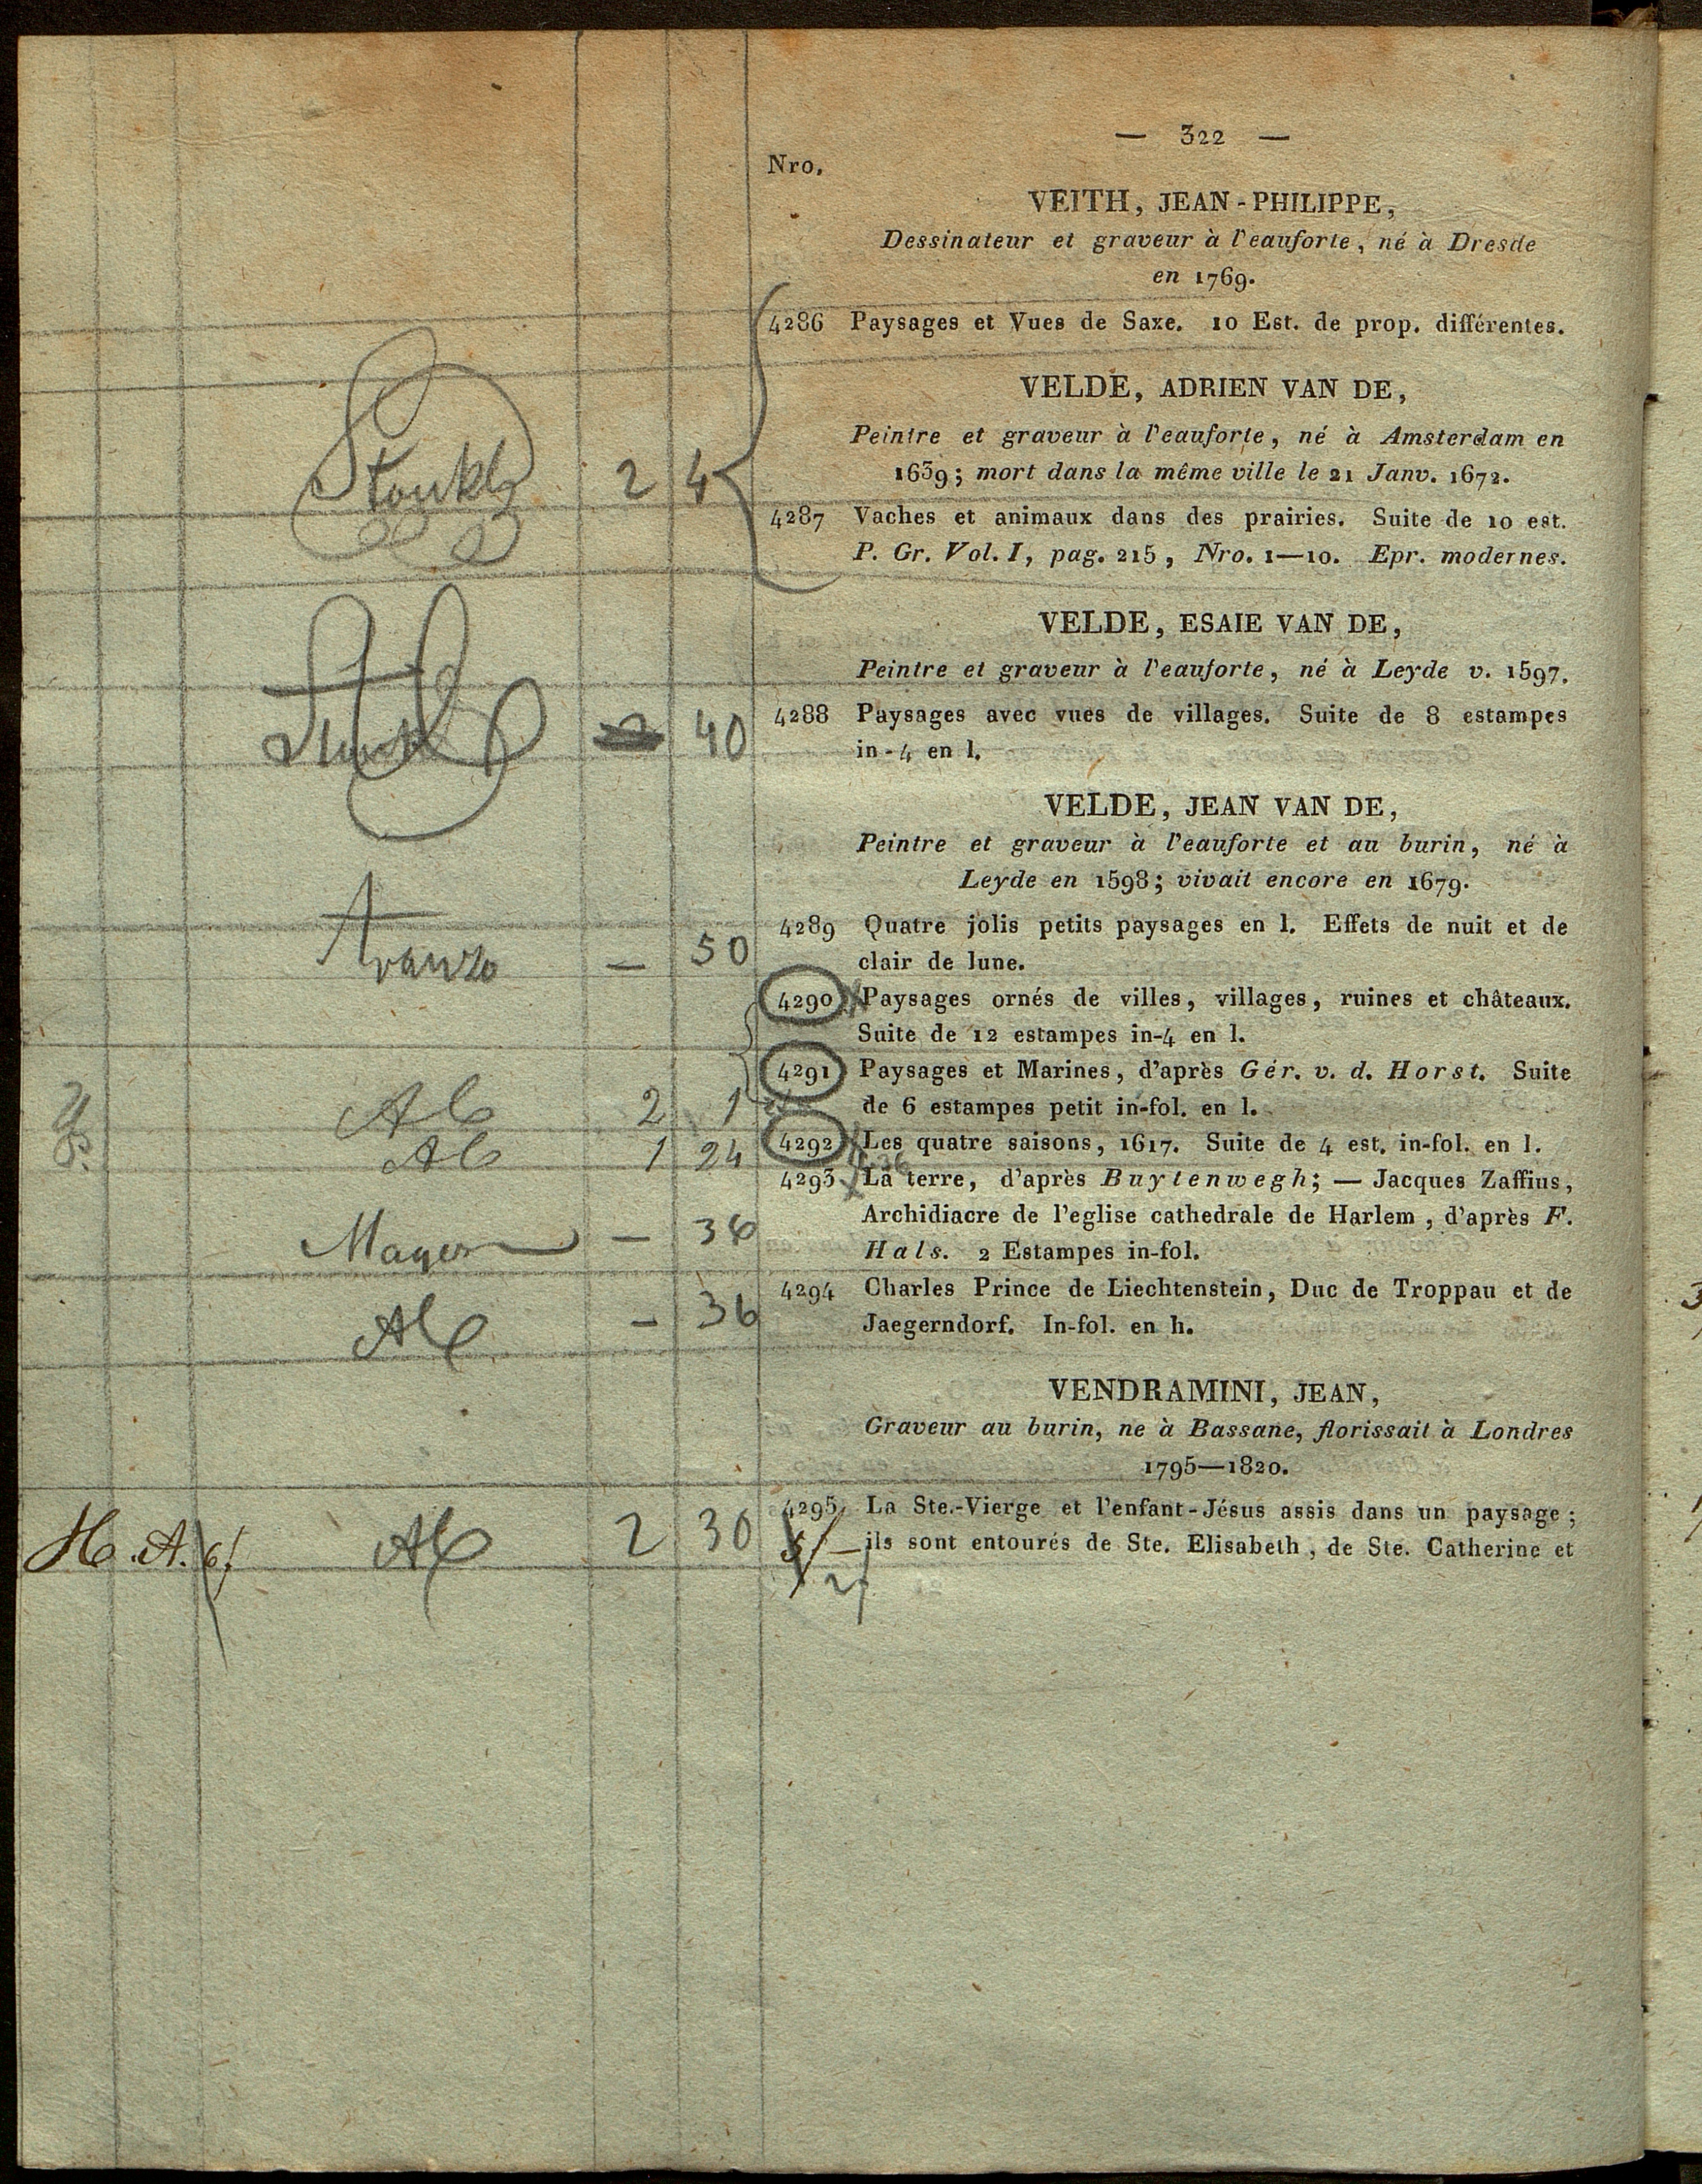 — 322 —
Nro.
VEITH, JEAN-PHILIPPE,
Dessinateur et graveur à l'eauforte, né à Dresde
en 1769.
4286 Paysages et Vues de Saxe. 10 Est. de prop. différentes.
VELDE, ADRIEN VAN DE,
Peintre et graveur à l'eauforte, né à Amsterdam en
1639; mort dans la même ville le 21 Janv. 1672.
2 4
4287 Vaches et animaux dans des prairies. Suite de 10 est.
P. Gr. Vol. I, pag. 215, Nro. 1—10. Epr. modernes.
VELDE, ESAIE VAN DE,
Peintre et graveur à l'eauforte, né à Leyde v. 1597.
40 4288 Paysages avec vues de villages. Suite de 8 estampes
in-4 en l.
VELDE, JEAN VAN DE,
Peintre et graveur à l'eauforte et au burin, né à
Leyde en 1598; vivait encore en 1679.
4289 Quatre jolis petits paysages en l. Effets de nuit et de
— 50 clair de lune.
4290 Paysages ornés de villes, villages, ruines et châteaux.
Suite de 12 estampes in-4 en l.
4291 Paysages et Marines, d'après Gér. v. d. Horst. Suite
2 1 de 6 estampes petit in-fol. en l.
1 24 4292 Les quatre saisons, 1617. Suite de 4 est. in-fol. en l.
4293 La terre, d'après Buytenwegh; — Jacques Zaffius,
Archidiacre de l'eglise cathedrale de Harlem, d'après F.
Mayer — 36 Hals. 2 Estampes in-fol.
4294 Charles Prince de Liechtenstein, Duc de Troppau et de
— 36 Jaegerndorf. In-fol. en h.
VENDRAMINI, JEAN,
Graveur au burin, ne à Bassane, florissait à Londres
1795—1820.
4295 La Ste.-Vierge et l'enfant-Jésus assis dans un paysage;
H. A. 2 30 ils sont entourés de Ste. Elisabeth, de Ste. Catherine et